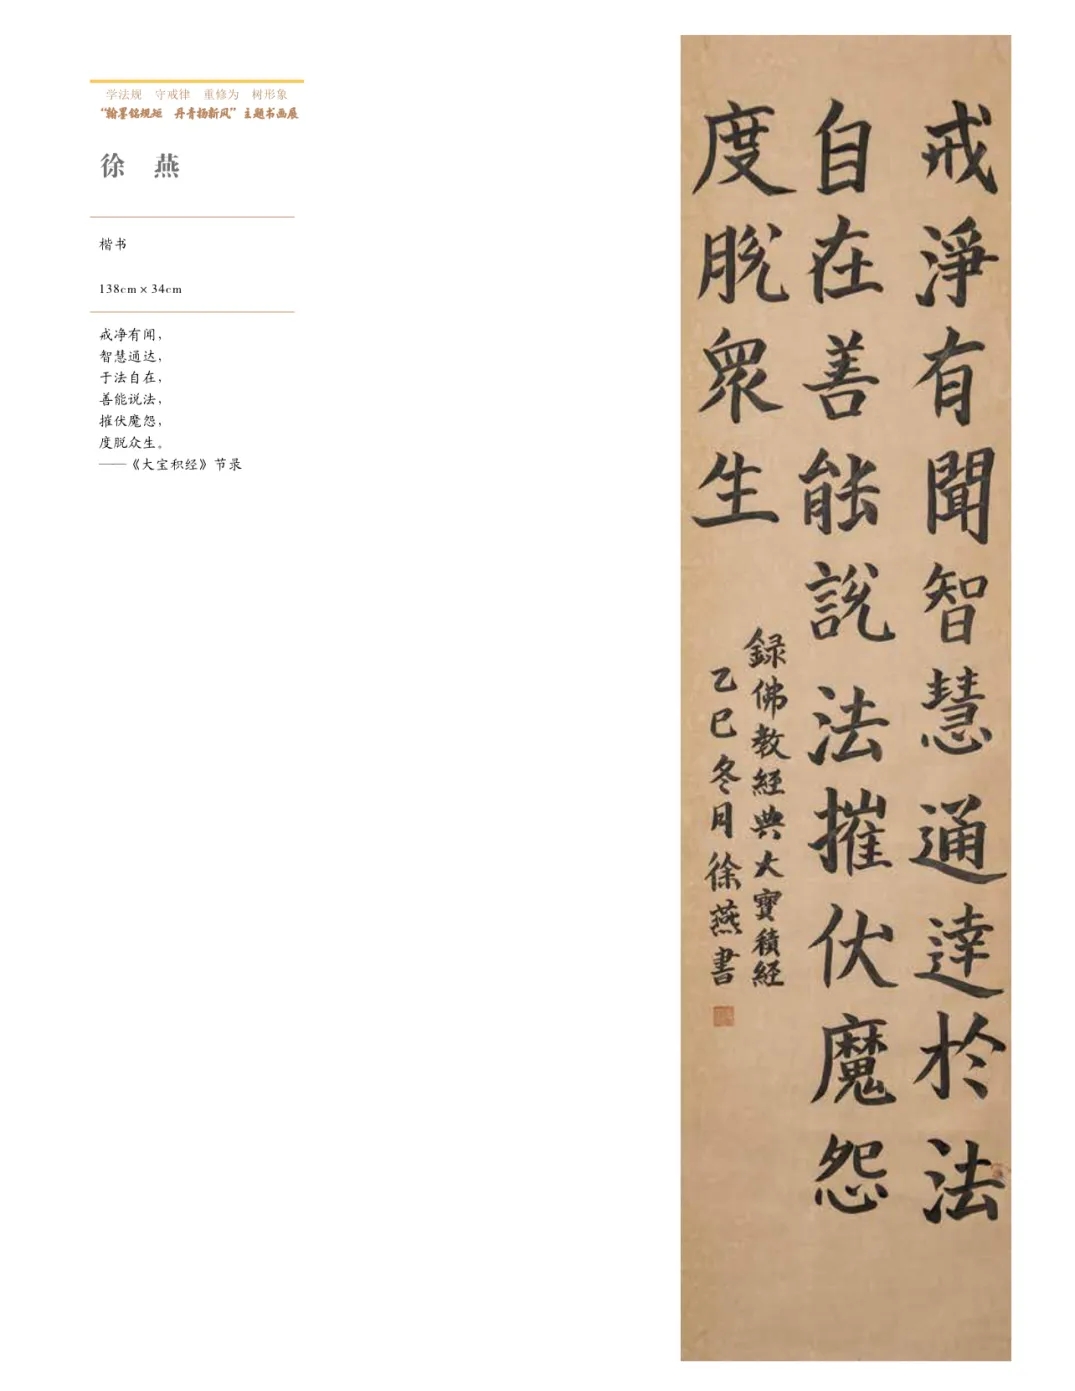 学法规 守戒律 重修为 树形象
“翰墨铭规矩 丹青扬新风”主题书画展
徐 燕
楷书
138cm × 34cm
戒净有闻，
智慧通达，
于法自在，
善能说法，
摧伏魔怨，
度脱众生。
——《大宝积经》节录
戒淨有聞智慧通達於法
自在善能說法摧伏魔怨
度脫衆生
録佛教經典大寶積經
乙巳冬月徐燕書